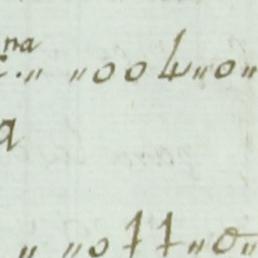 na
„ „004„0„
a
„ „077„0„